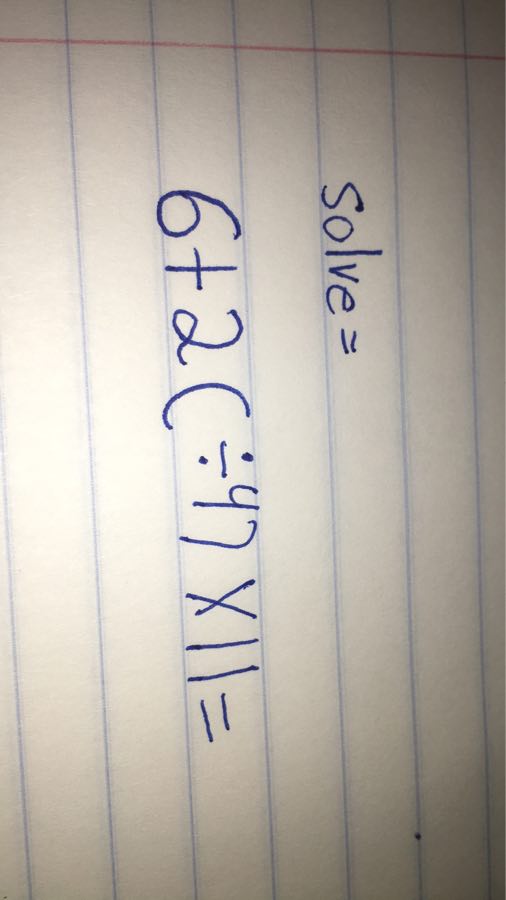 Solve =
6+2(÷47 X11=